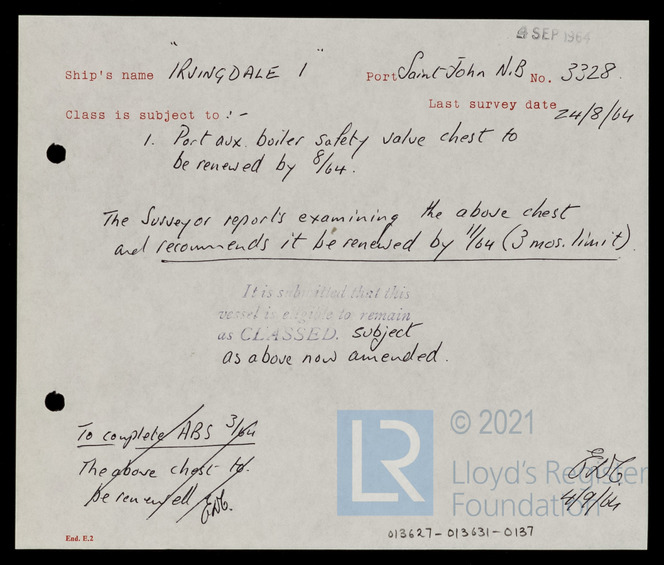 4 SEP 1964
Ship's name "IRVINGDALE 1" Port Saint John N.B No. 3328.
Last survey date 24/8/64
Class is subject to :-
1. Port aux. boiler safety valve chest to
be renewed by 8/64.
The Surveyor reports examining the above chest
and recommends it be renewed by 11/64 (3 mos. limit).
It is submitted that this
vessel is eligible to remain
as CLASSED. subject
as above now amended.
To complete ABS 3/64
The above chest to
be renewed
4/9/64
LR
© 2021
Lloyd's Register
Foundation
End. E.2
013627-013631-0137